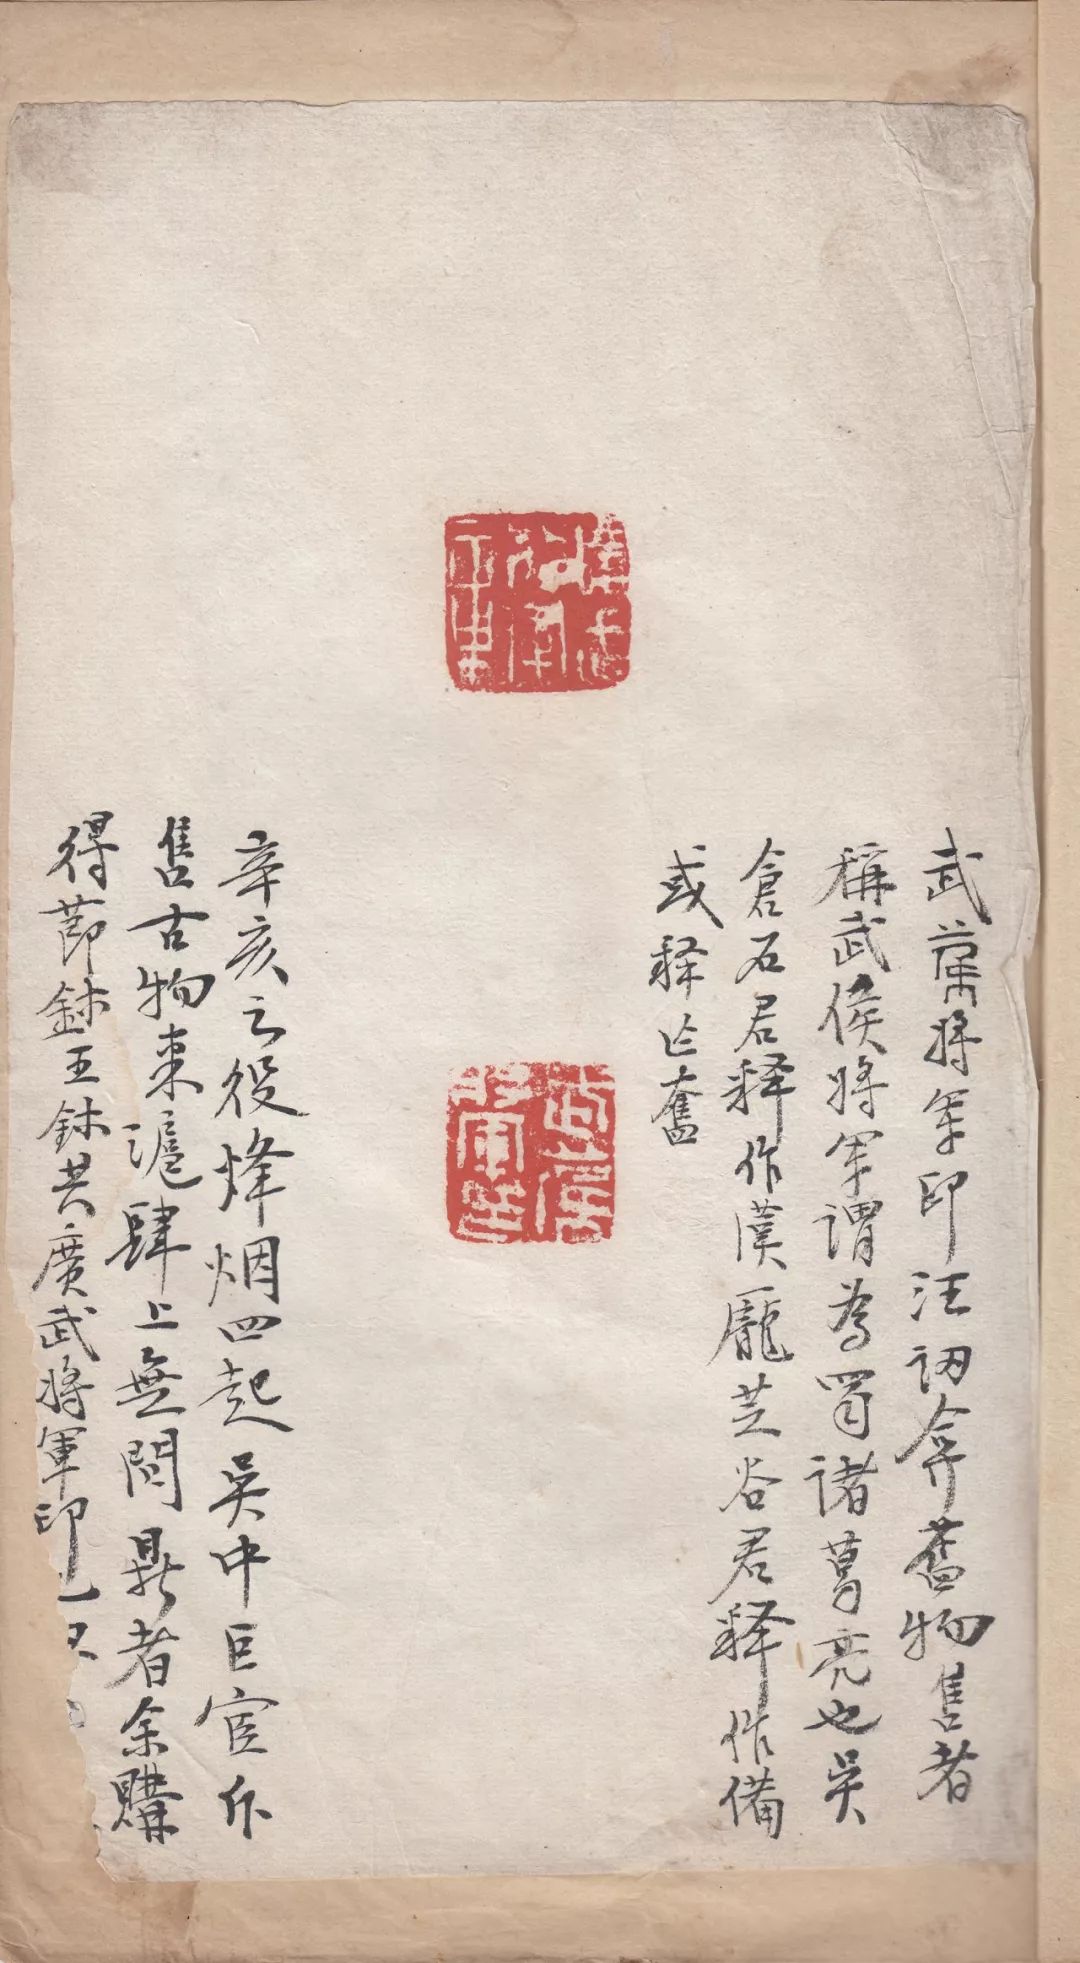 武𤰈將軍印汪訒弆舊物售者
稱武侯將軍謂為蜀諸葛亮也吳
倉石君釋作漢龐芝谷君釋作備
或釋作奮
辛亥之役烽烟四起吳中巨宦斥
售古物來滬肆上無問鼎者余購
得節鉥王鉥共廣武將軍印